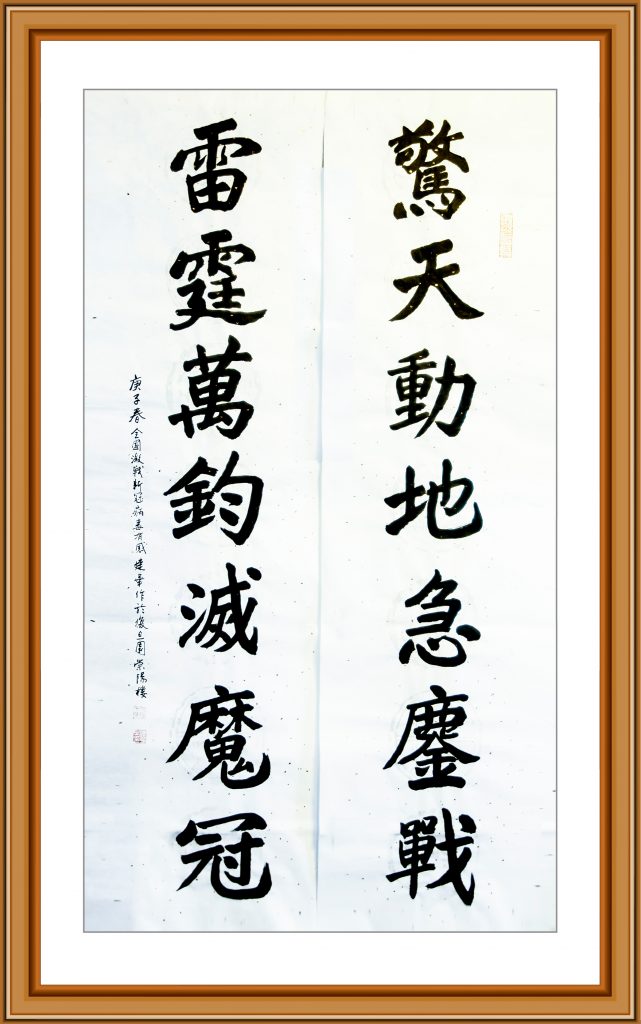 驚天動地急鏖戰
雷霆萬鈞滅魔冠
庚子春全國激战新冠病毒有感 建華作於復旦園 榮陽樓